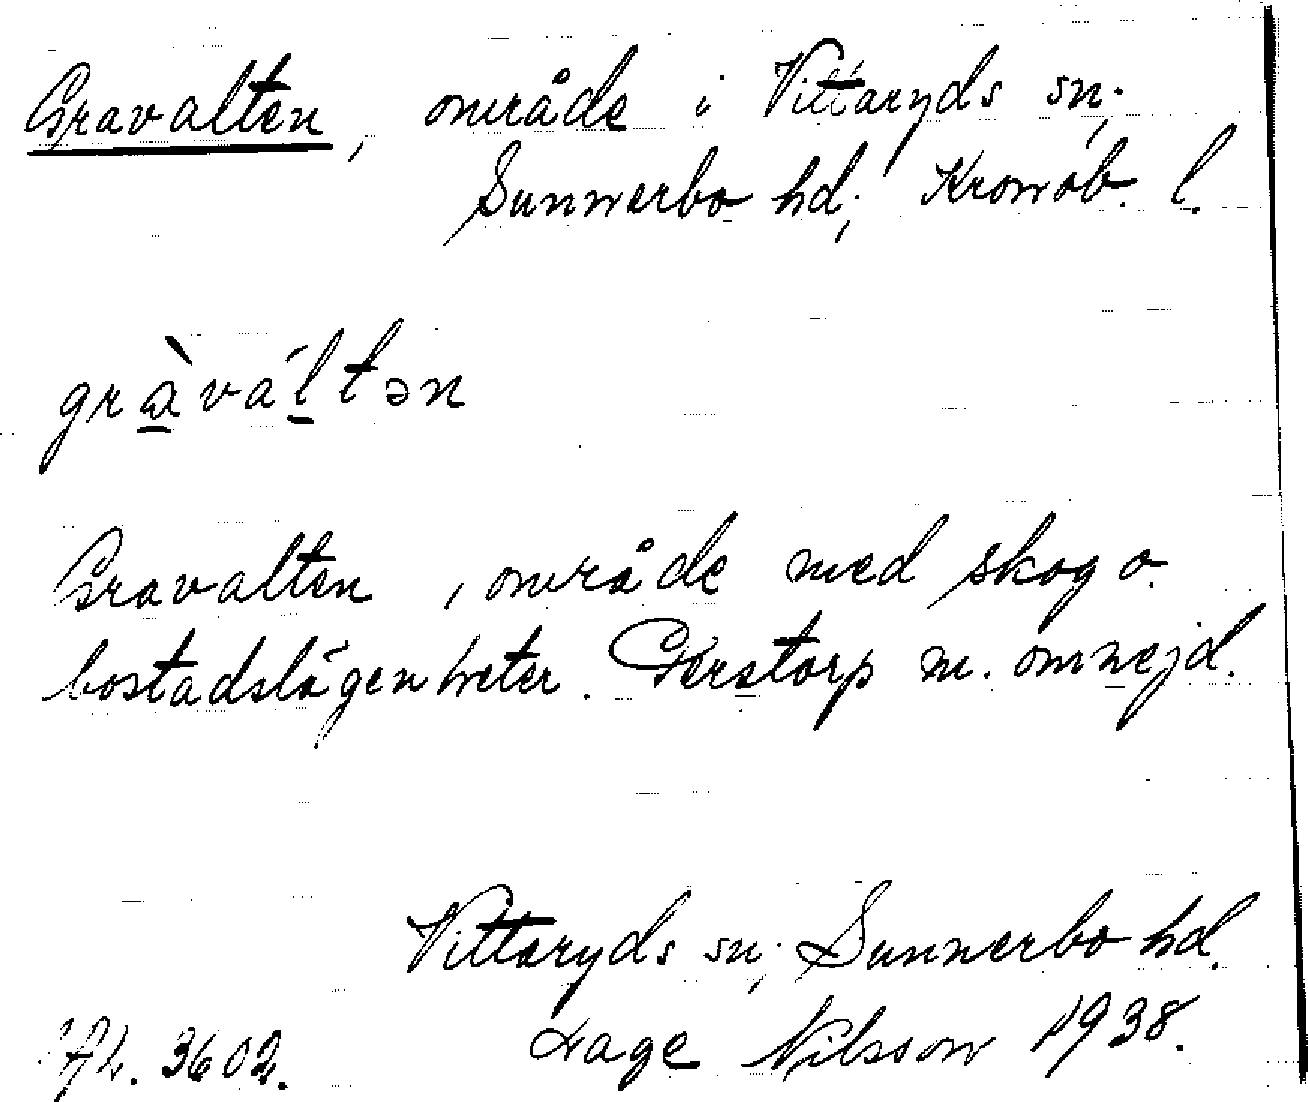 Gravalten, område i Vittaryds sn;
Sunnerbo hd; Kronob. l.
gràváltən
Gravalten, område med skog o.
bostadslägenheter. Gerstorp m. omnejd.
Vittaryds sn; Sunnerbo hd.
3602. Tage Nilsson 1938.